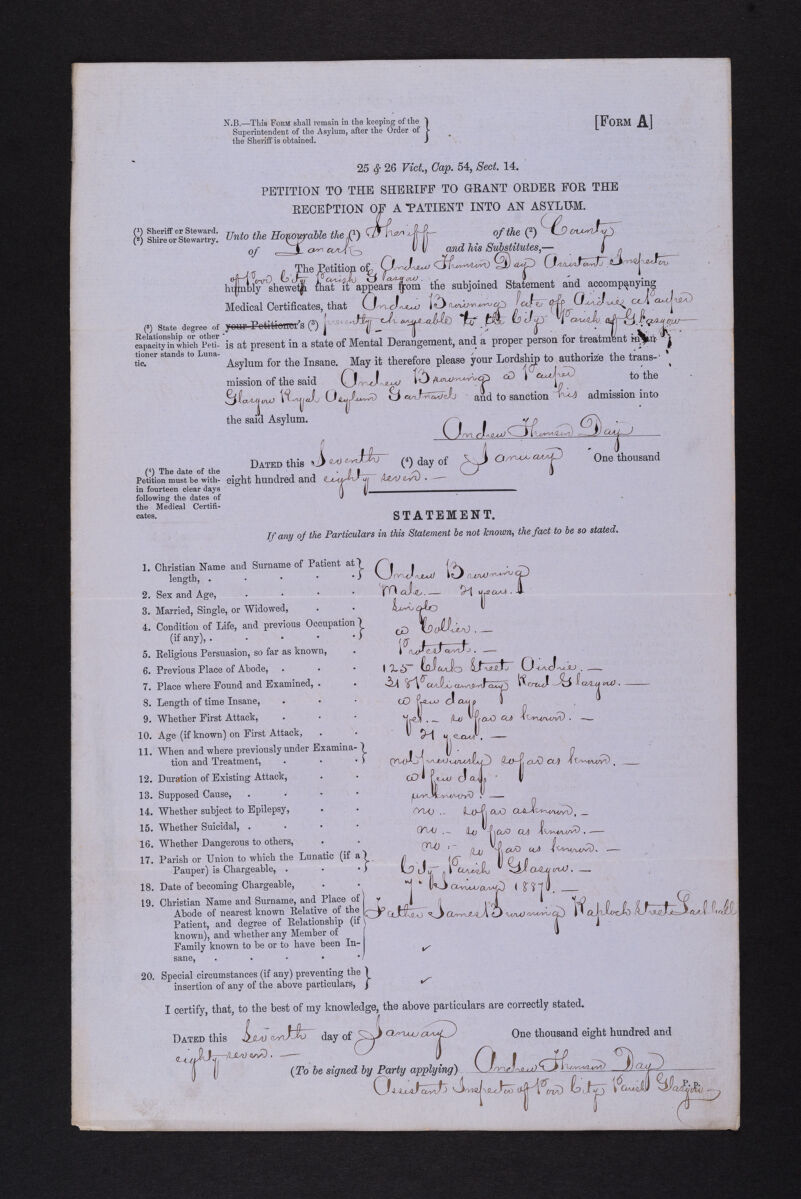 N.B.—This Form shall remain in the keeping of the
Superintendent of the Asylum, after the Order of
the Sheriff is obtained.
[Form A]
25 & 26 Vict., Cap. 54, Sect. 14.
PETITION TO THE SHERIFF TO GRANT ORDER FOR THE
RECEPTION OF A PATIENT INTO AN ASYLUM.
(1) Sheriff or Steward.
(2) Shire or Stewartry.
Unto the Honourable the (1) Sheriff of the (2) County
of Lanark and his Substitutes,—
The Petition of Andrew Thomson Day Assistant Inspector
of Poor, City Parish Glasgow
humbly sheweth that it appears from the subjoined Statement and accompanying
Medical Certificates, that Andrew Browning late of Airdrie a Pauper
(3) State degree of
Relationship or other
capacity in which Peti-
tioner stands to Luna-
tic.
your Petitioner's (3) presently chargeable to the City Parish of Glasgow
is at present in a state of Mental Derangement, and a proper person for treatment in an
Asylum for the Insane. May it therefore please your Lordship to authorize the trans-
mission of the said Andrew Browning a Pauper to the
Glasgow Royal Asylum Gartnavel and to sanction his admission into
the said Asylum.
Andrew Thomson Day
(4) The date of the
Petition must be with-
in fourteen clear days
following the dates of
the Medical Certifi-
cates.
Dated this Seventh (4) day of January One thousand
eight hundred and eighty seven.—
STATEMENT.
If any of the Particulars in this Statement be not known, the fact to be so stated.
1. Christian Name and Surname of Patient at length, . Andrew Browning
2. Sex and Age, Male.— 21 years.
3. Married, Single, or Widowed, Single
4. Condition of Life, and previous Occupation (if any), . a Collier.—
5. Religious Persuasion, so far as known, Protestant.—
6. Previous Place of Abode, 125 Clark Street Airdrie.—
7. Place where Found and Examined, . 318 Parliamentary Road Glasgow.—
8. Length of time Insane, a few days
9. Whether First Attack, yes.— so far as known.—
10. Age (if known) on First Attack, 21 years.—
11. When and where previously under Examination and Treatment, not previously so far as known.—
12. Duration of Existing Attack, a few days
13. Supposed Cause, unknown.—
14. Whether subject to Epilepsy, no.. so far as known.—
15. Whether Suicidal, . no.— so far as known.—
16. Whether Dangerous to others, no.— so far as known.—
17. Parish or Union to which the Lunatic (if a Pauper) is Chargeable, . City Parish Glasgow.—
18. Date of becoming Chargeable, 7th January 1887.—
19. Christian Name and Surname, and Place of
Abode of nearest known Relative of the
Patient, and degree of Relationship (if
known), and whether any Member of
Family known to be or to have been In-
sane,
Father James Browning Raploch Street Larkhall
✓
20. Special circumstances (if any) preventing the
insertion of any of the above particulars, ✓
I certify, that, to the best of my knowledge, the above particulars are correctly stated.
Dated this Seventh day of January One thousand eight hundred and
eighty seven.—
(To be signed by Party applying) Andrew Thomson Day
Assistant Inspector of Poor City Parish Glasgow
P.P.